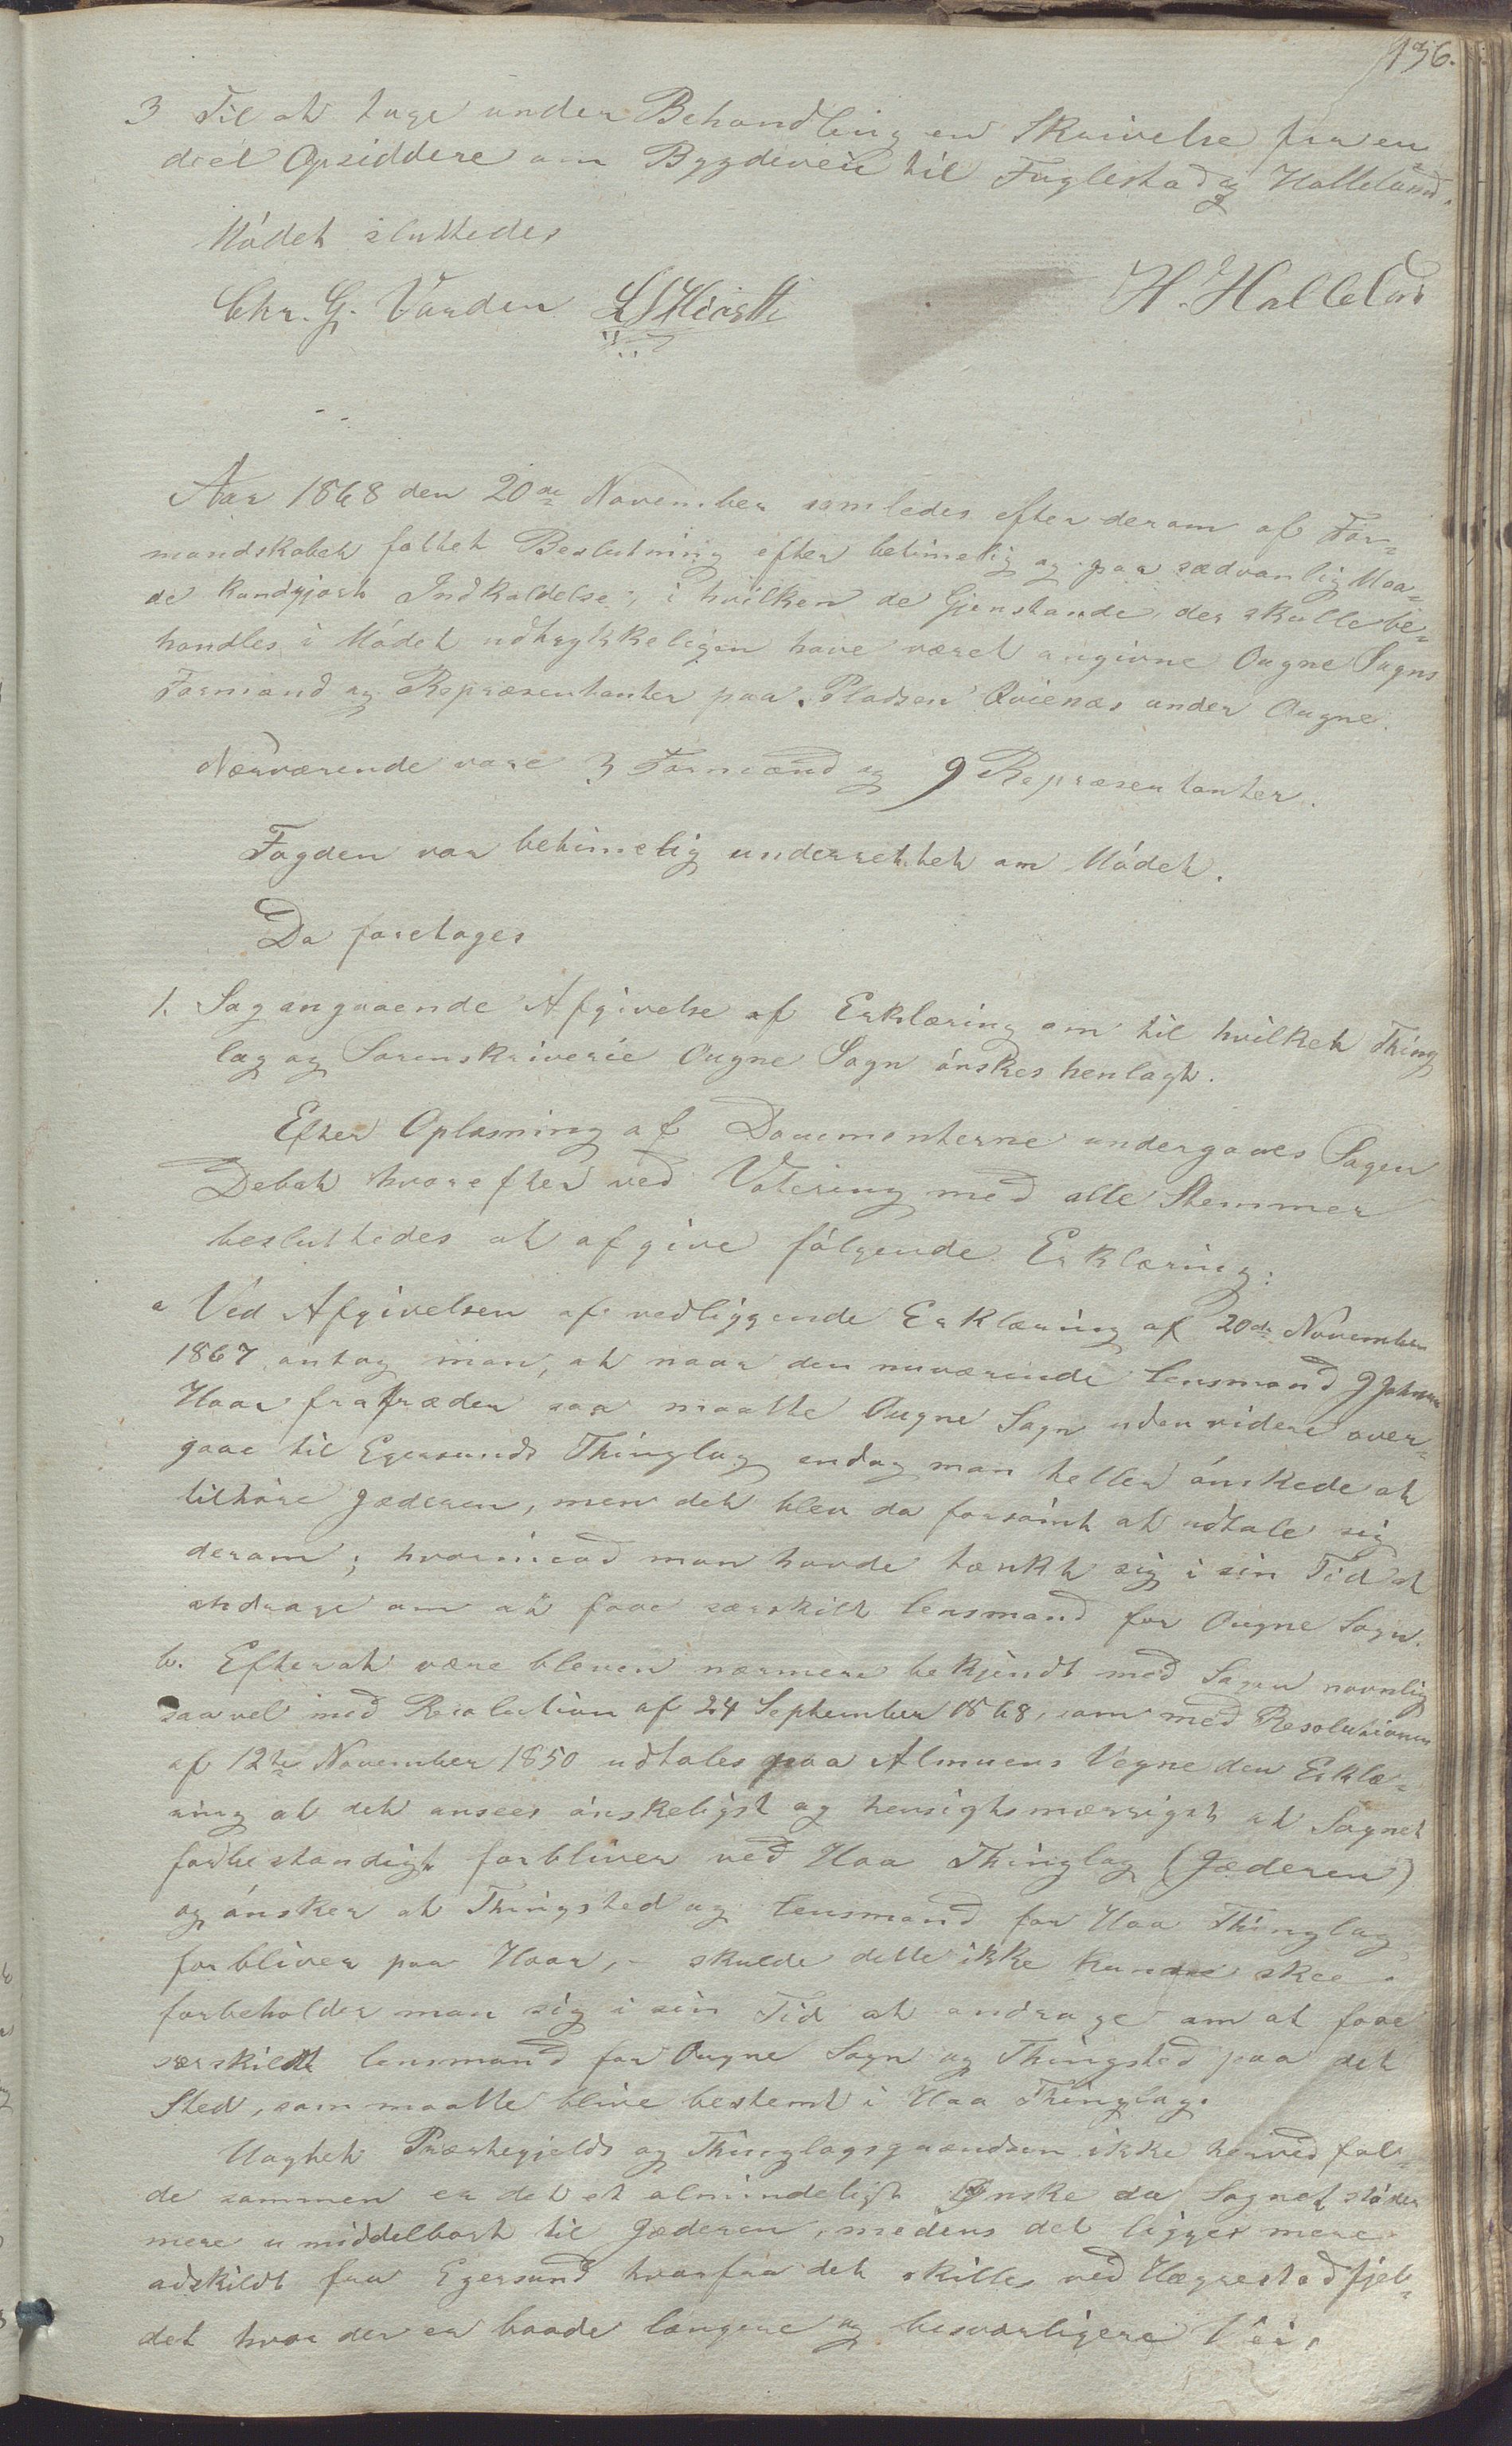 136.
3 Til at tage under Behandling en Skrivelse fra en-
deel Opsiddere om Bygdeveie til Fuglestad og Halleland.
Mödet sluttedes
Chr. G. Varden H. Halleland
Aar 1868 den 20de November samledes efter derom af For-
mandskabet fattet Beslutning efter betimelig og paa sædvanlig Maa-
de kundgjort Indkaldelse, i hvilken de Gjenstande, der skulle be-
handles i Mödet udtrykkeligen have været angivne Ougne Sogns
Formænd og Repræsentanter paa Pladsen Qvienæs under Ougne.
Nærværende vare 3 Formænd og 9 Repræsentanter.
Fogden var betimelig underrettet om Mödet.
Da foretoges
1. Sag angaaende Afgivelse af Erklæring om til hvilket Thing
lag og Sorenskriverie Ougne Sogn önskes henlagt.
Efter Oplæsning af Documenterne undergaves Sagen
Debat hvorefter ved Votering med alle Stemmer
besluttedes at afgive fölgende Erklæring:
a Ved Afgivelsen af vedliggende Erklæring af 20de November
1867 antog man, at naar den nuværende Lensmand J Johnsen
Haar fratræder saa maatte Ougne Sogn uden videre over-
gaae til Egersunds Thinglag endog man heller önskede at
tilhöre Jæderen, men det blev da forsömt at udtale sig
derom; hvorimod man havde tænkt sig i sin Tid at
andrage om at faae særskilt Lensmand for Ougne Sogn.
b. Efterat være bleven nærmere bekjendt med Sagen navnlig
saavel med Resolution af 24 September 1868, som med Resolutionen
af 12te November 1850 udtales paa Almuens Vegne den Erklæ-
ring at det ansees önskeligst og hensigtsmæssigst at Sognet
fodbestandigt forbliver ved Haa Thinglag (Jæderen)
og önsker at Thingsted og Lensmand for Haa Thinglag
forbliver paa Haar, - skulde dette ikke kunne skee
forbeholder man sig i sin Tid at andrage om at faae
særskildt Lensmand for Ougne Sogn og Thingsted paa det
Sted, som maatte blive bestemt i Haa Thinglag.
Uagtet Præstegjelds og Thinglagsgrændsen ikke herved fal-
de sammen er det et almindeligt Ønske da Sognet stöder
mere umiddelbart til Jæderen, medens det ligger mere
adskildt fra Egersund hvorfra det skilles ved Hægrestadfjel-
det hvor der er baade længere og besværligere Vei.